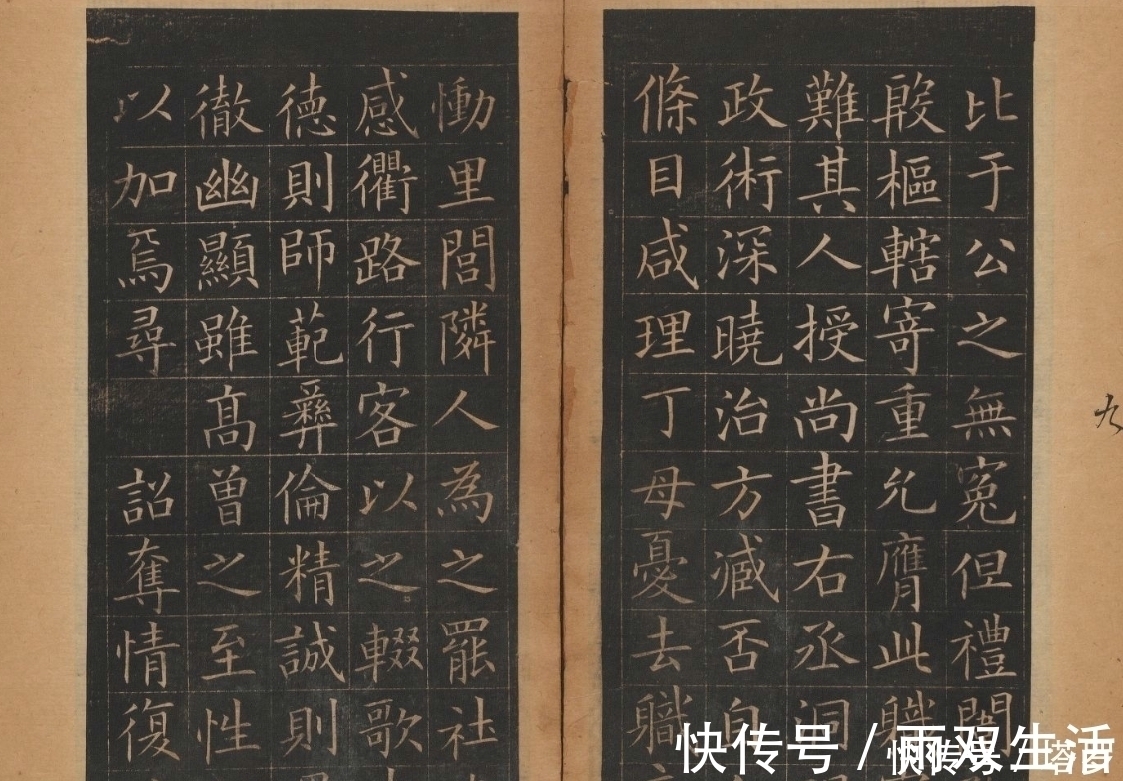 比于公之無冤但禮闈
殷樞轄寄重允膺此職
難其人授尚書右丞洞
政術深曉治方臧否自
條目咸理丁母憂去職
慟里閭隣人為之罷社
感衢路行客以之輟歌
德則師範彝倫精誠則
徹幽顯雖高曾之至性
以加焉尋 詔奪情復
九
快传号 / 雨双生活
快传号